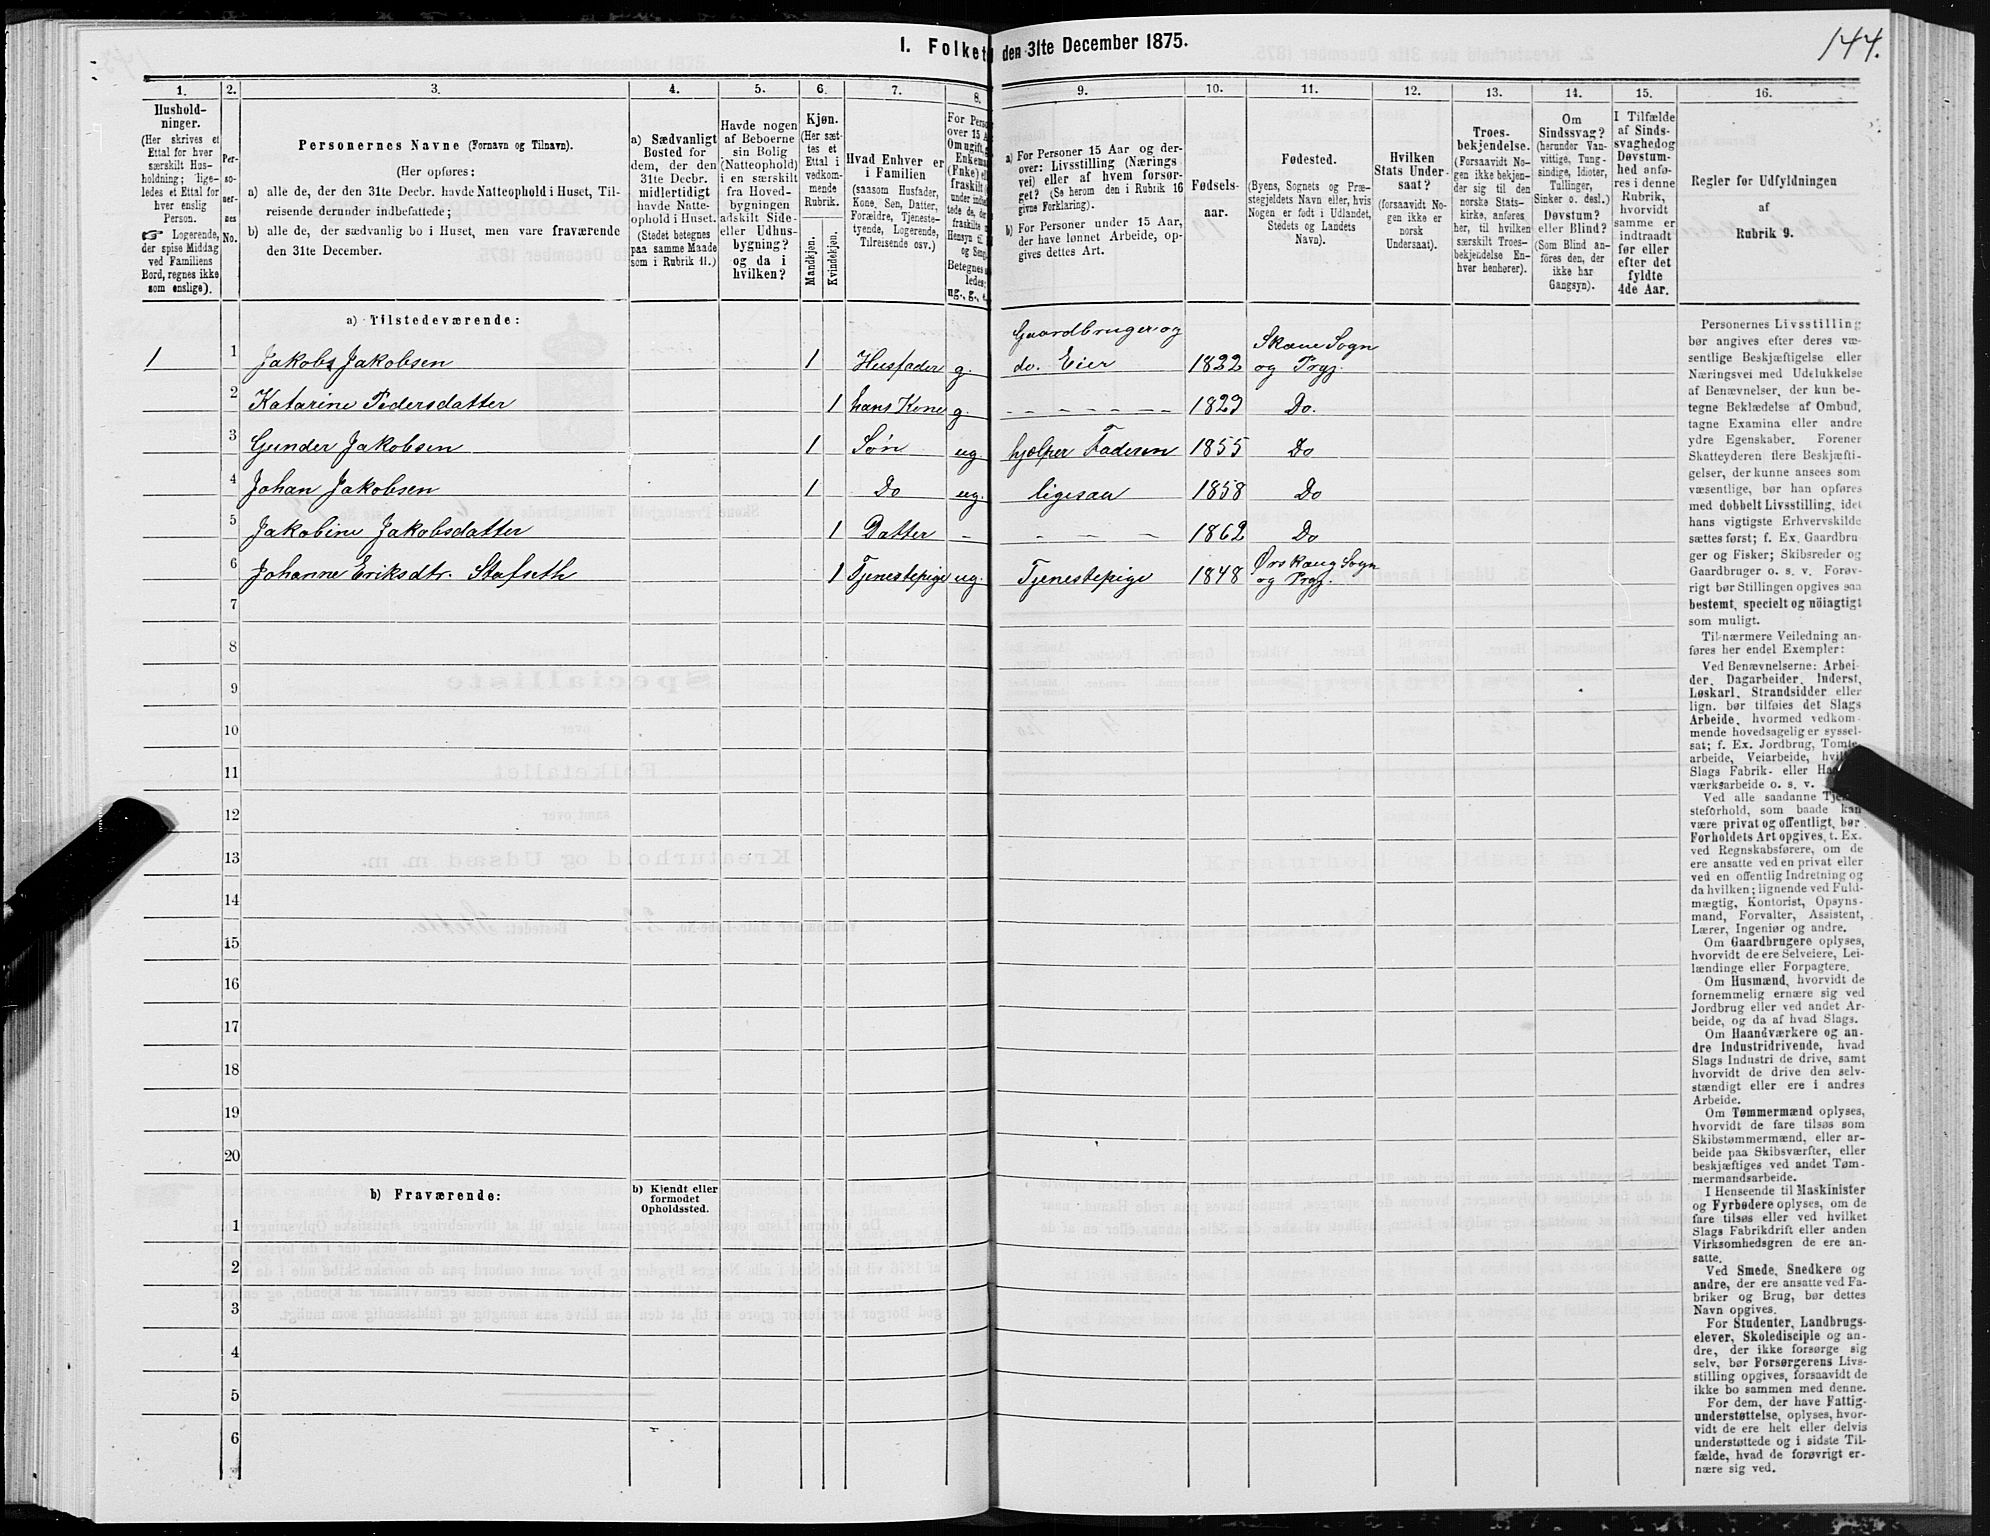 144.
I. Folket
den 31te December 1875.
1. 2. 3. 4. 5. 6. 7. 8. 9. 10. 11. 12. 13. 14. 15. 16.
Hushold-
ninger.
(Her skrives et
Ettal for hver
særskilt Hus-
holdning; lige-
ledes et Ettal for
hver enslig
Person.
☞ Logerende,
der spise Middag
ved Familiens
Bord, regnes ikke
som enslige).
Per-
so-
ner-
nes
No.
Personernes Navne (Fornavn og Tilnavn).
(Her opføres:
a) alle de, der den 31te Decbr. havde Natteophold i Huset, Til-
reisende derunder indbefattede;
b) alle de, der sædvanlig bo i Huset, men vare fraværende
den 31te December.
a) Sædvanligt
Bosted for
dem, der den
31te Decbr.
midlertidigt
havde Natte-
ophold i Huset.
(Stedet betegnes
paa samme Maade
som i Rubrik 11.)
Havde nogen
af Beboerne
sin Bolig
(Natteophold)
i en særskilt
fra Hoved-
bygningen
adskilt Side-
eller Udhus-
bygning?
og da i
hvilken?
Kjøn.
(Her sæt-
tes et
Ettal i
vedkom-
mende
Rubrik.
Mandkjøn.
Kvindekjøn.
Hvad Enhver er
i Familien
(saasom Husfader,
Kone, Søn, Datter,
Forældre, Tjeneste-
tyende, Logerende,
Tilreisende osv.)
For Perso
over 15 Aa
Om ugift, g
Enkema
(Enke) ell
fraskilt
under indbe
tede de, der
fraskilte m
Hensyn til
og Seng.
Betegnes
ledes;
ug., g., e.
a) For Personer 15 Aar og der-
over: Livsstilling (Nærings
vei) eller af hvem forsør-
get? (Se herom den i Rubrik 16
givne Forklaring).
b) For Personer under 15 Aar,
der have lønnet Arbeide, op-
gives dettes Art.
Fødsels-
aar.
Fødested.
(Byens, Sognets og Præ-
stegjeldets Navn eller, hvis
Nogen er født i Udlandet,
Stedets og Landets
Navn).
Hvilken
Stats Under-
saat?
(forsaavidt No-
gen ikke er
norsk
Undersaat).
Troes-
bekjendelse.
(Forsaavidt No-
gen ikke bekjen-
der sig til den
norske Stats-
kirke, anføres
her, til hvilken
særskilt Troes-
bekjendelse En-
hver henhører).
Om
Sindssvag?
(herunder Van-
vittige, Tung-
sindige, Idioter,
Tullinger,
Sinker o. desl.)
Døvstum?
eller Blind?
(Som Blind an-
føres den, der
ikke har
Gangsyn).
I Tilfælde
af Sinds-
svaghed og
Døvstum-
hed anfø-
res i denne
Rubrik,
hvorvidt
samme er
indtraadt
før eller
efter det
fyldte
4de Aar.
Regler for Udfyldningen
af
Rubrik 9.
a) Tilstedeværende:
1 1 Jakobs Jakobsen 1 Husfader g. Gaardbruger og do. Eier 1822 Skoue Sogn og Prgj.
2 Katarine Pedersdatter 1 hans Kone g. - - - - - - 1823 Do.
3 Gunder Jakobsen 1 Søn ug. hjælper Faderen 1855 Do
4 Johan Jakobsen 1 Do ug. ligesaa 1858 Do
5 Jakobine Jakobsdatter 1 Datter - - - - 1862 Do
6 Johanne Eriksdtr. Stafseth 1 Tjenestepige ug. Tjenestepige 1848 Ørskaug Sogn og Prgj.
7
8
9
10
11
12
13
14
15
16
17
18
19
20
b) Fraværende:
b) Kjendt eller
formodet
Opholdssted.
1
2
3
4
5
6
Personernes Livsstilling
bør angives efter deres væ-
sentlige Beskjæftigelse eller
Næringsvei med Udelukkelse
af Benævnelser, der kun be-
tegne Beklædelse af Ombud,
tagne Examina eller andre
ydre Egenskaber. Forener
Skatteyderen flere Beskjæfti-
gelser, der kunne ansees som
væsentlige, bør han opføres
med dobbelt Livsstilling, idet
hans vigtigste Erhvervskilde
sættes først; f. Ex. Gaardbru
ger og Fisker; Skibsreder og
Gaardbruger o. s. v. Forøv-
rigt bør Stillingen opgives saa
bestemt, specielt og nöiagtigt
som muligt.
Til nærmere Veiledning an-
føres her endel Exempler:
Ved Benævnelserne: Arbei-
der, Dagarbeider, Inderst,
Løskarl, Strandsidder eller
lign. bør tilføies det Slags
Arbeide, hvormed vedkom-
mende hovedsagelig er syssel-
sat; f. Ex. Jordbrug, Tomte-
arbeide, Veiarbeide, hvil
Slags Fabrik- eller Ha
værksarbeide o. s. v.
Ved alle saadanne Tje
steforhold, som baade kan
være privat og offentligt, bør
Forholdets Art opgives, t. Ex.
ved Regnskabsførere, om de
ere ansatte ved en privat eller
ved en offentlig Indretning og
da hvilken; lignende ved Fuld-
mægtig, Kontorist, Opsyns-
mand, Forvalter, Assistent,
Lærer, Ingeniør og andre.
Om Gaardbrugere oplyses,
hvorvidt de ere Selveiere, Lei-
lændinge eller Forpagtere.
Om Husmænd, hvorvidt de
fornemmelig ernære sig ved
Jordbrug eller ved andet Ar-
beide, og da af hvad Slags.
Om Haandværkere og an-
dre Industridrivende, hvad
Slags Industri de drive, samt
hvorvidt de drive den selv-
stændigt eller ere i andres
Arbeide.
Om Tømmermænd oplyses,
hvorvidt de fare tilsøs som
Skibstømmermænd, eller ar-
beide paa Skibsværfter, eller
beskjæftiges ved andet Tøm-
mermandsarbeide.
I Henseende til Maskinister
og Fyrbødere oplyses, om de
fare tilsøs eller ved hvilket
Slags Fabrikdrift eller anden
Virksomhedsgren de ere an-
satte.
Ved Smede, Snedkere og
andre, der ere ansatte ved Fa-
briker og Brug, bør dettes
Navn opgives.
For Studenter, Landbrugs-
elever, Skoledisciple og an-
dre, der ikke forsørge sig
selv, bør Forsørgerens Livs-
stilling opgives, forsaavidt de
ikke bo sammen med denne.
For dem, der have Fattig-
understøttelse, oplyses, hvor-
vidt de ere helt eller delvis
understøttede og i sidste Til-
fælde, hvad de forøvrigt er-
nære sig ved.